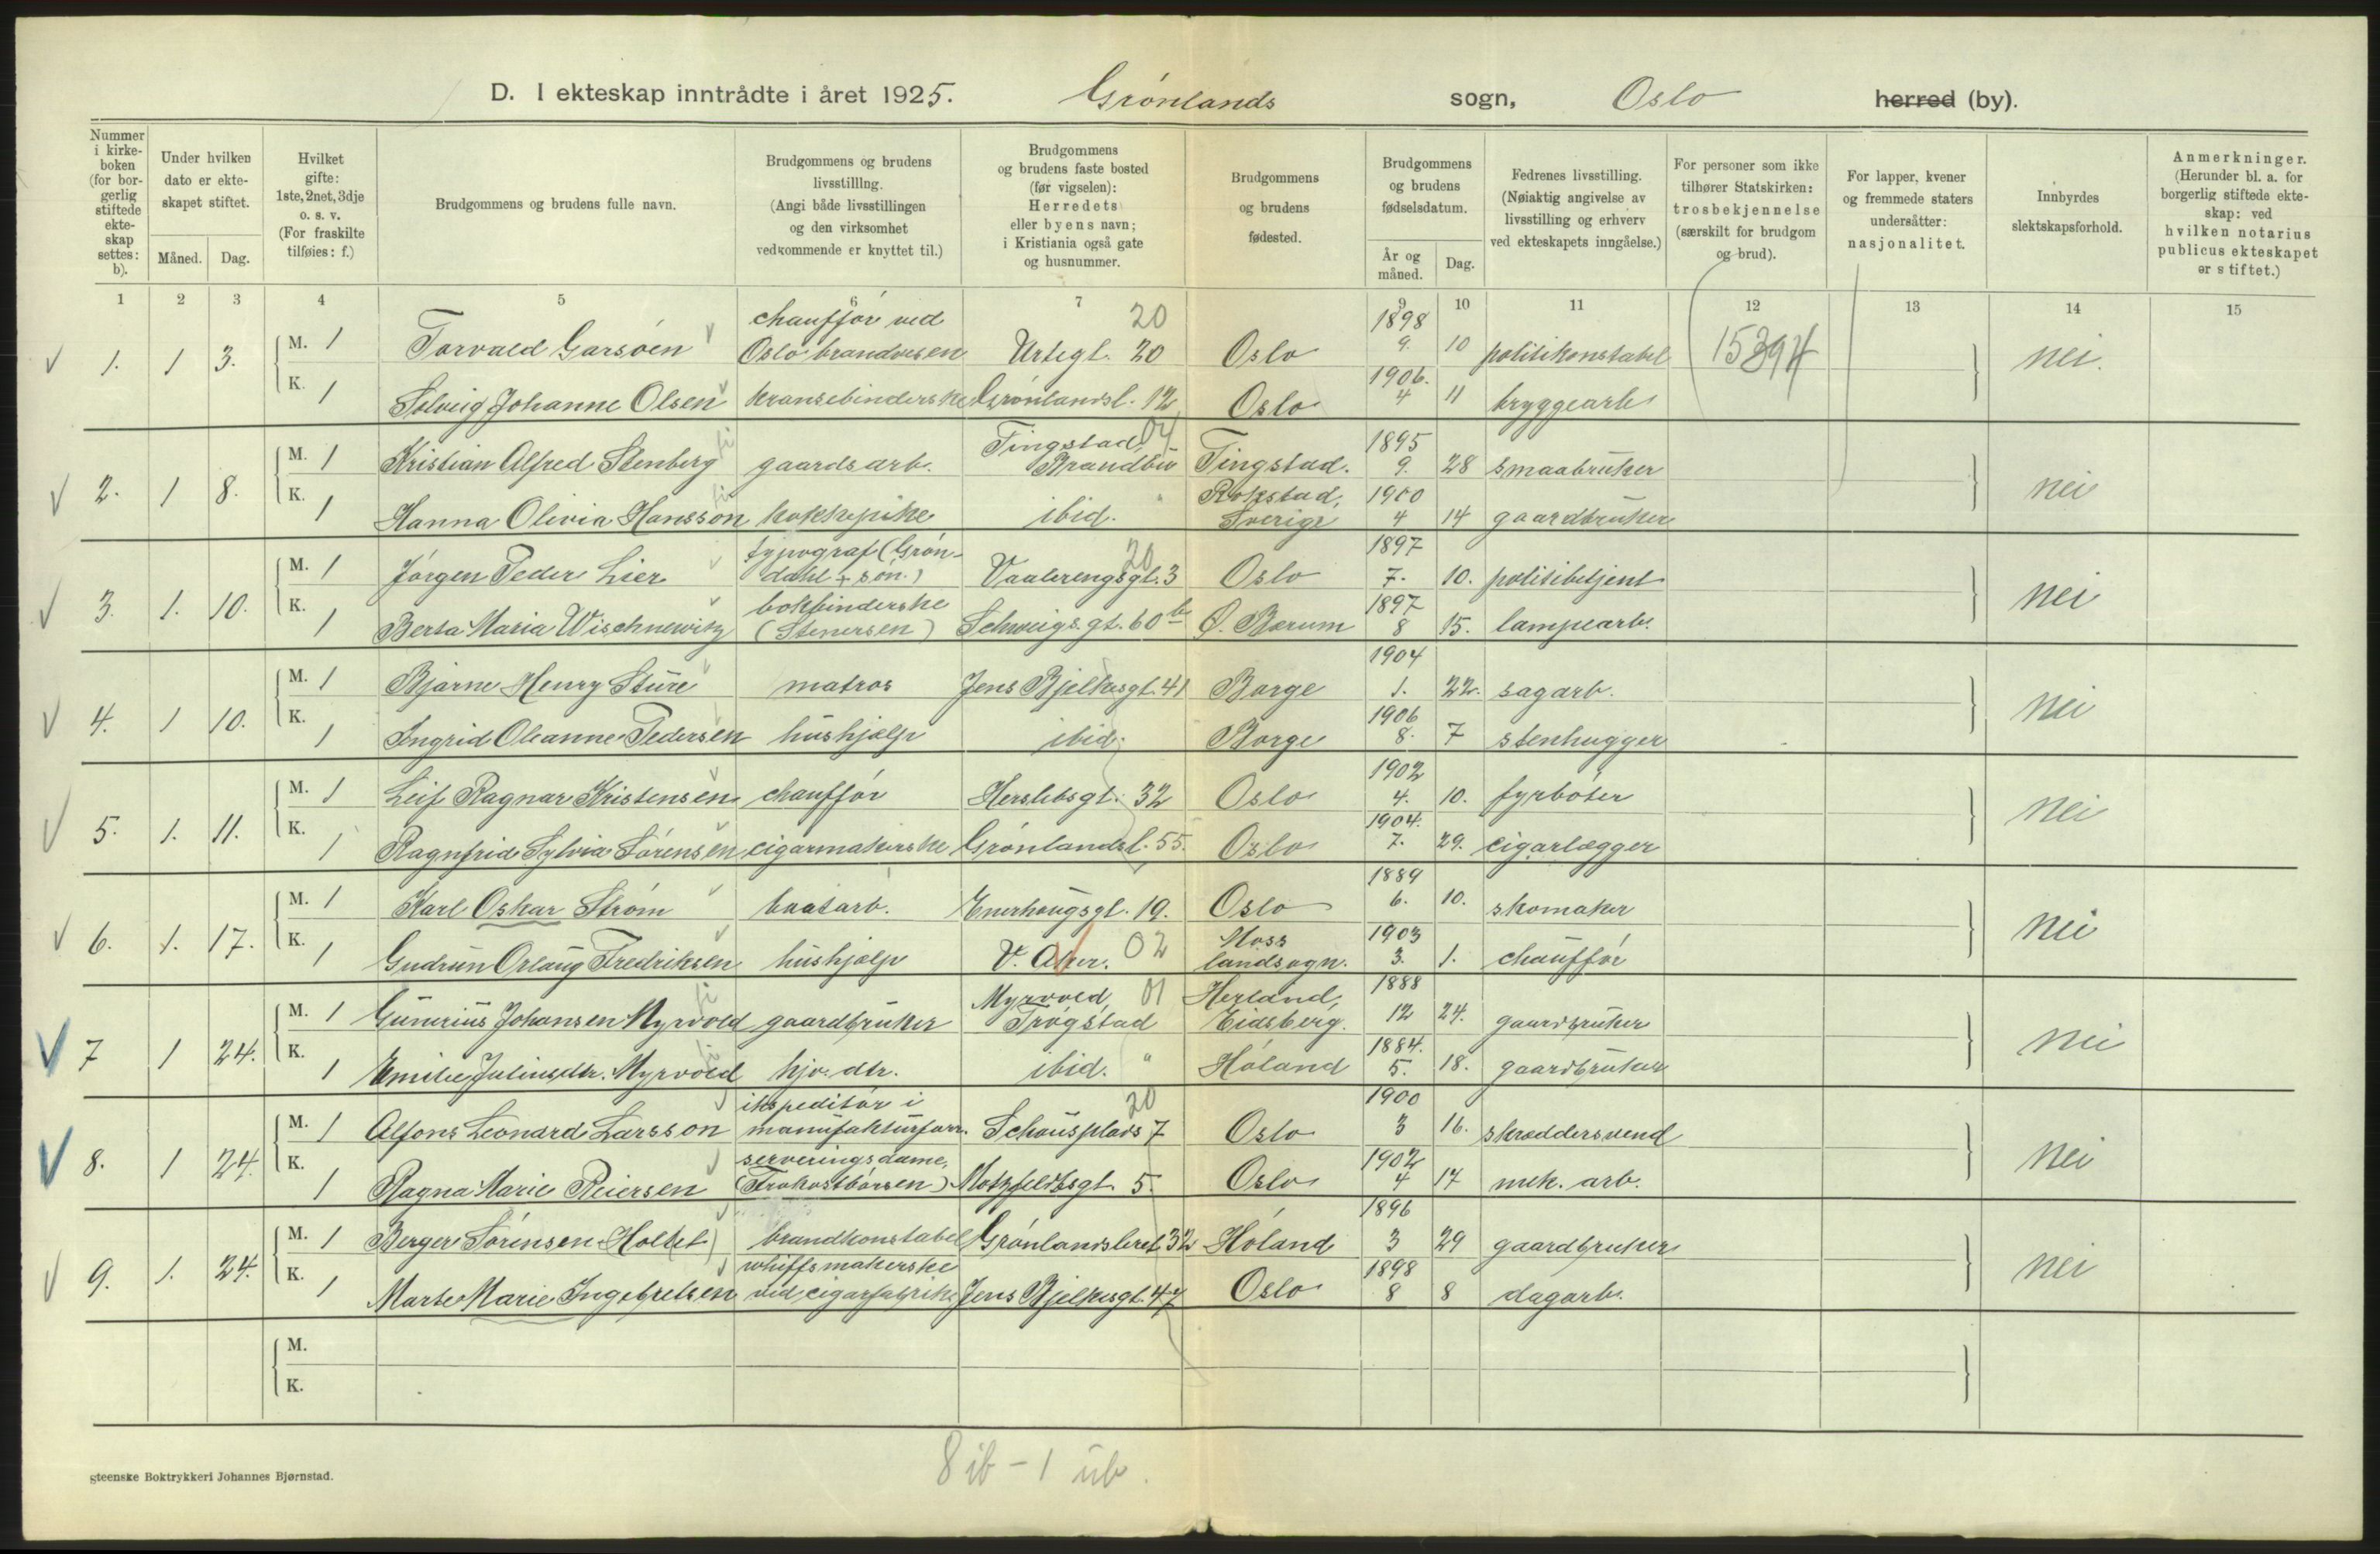 D. I ekteskap inntrådte i året 1925. Grønlands sogn, Oslo herred (by).
Nummer i kirkeboken (for borgerlig stiftede ekteskap settes: b).
Under hvilken dato er ekteskapet stiftet.
Måned. Dag.
Hvilket gifte: 1ste, 2net, 3dje o. s. v. (For fraskilte tilføies: f.)
Brudgommens og brudens fulle navn.
Brudgommens og brudens livsstilling. (Angi både livsstillingen og den virksomhet vedkommende er knyttet til.)
Brudgommens og brudens faste bosted (før vigselen): Herredets eller byens navn; i Kristiania også gate og husnummer.
Brudgommens og brudens fødested.
Brudgommens og brudens fødselsdatum.
År og måned. Dag.
Fedrenes livsstilling. (Nøiaktig angivelse av livsstilling og erhverv ved ekteskapets inngåelse.)
For personer som ikke tilhører Statskirken: trosbekjennelse (særskilt for brudgom og brud).
For lapper, kvener og fremmede staters undersåtter: nasjonalitet.
Innbyrdes slektskapsforhold.
Anmerkninger. (Herunder bl. a. for borgerlig stiftede ekteskap: ved hvilken notarius publicus ekteskapet er stiftet.)
1 2 3 4 5 6 7 8 9 10 11 12 13 14 15
1. 1 3. M. 1 Torvald Garsöen chauffør ved Oslo brandvesen Urtegt. 20 20 Oslo 1898 9. 10 politikonstabel 15394 nei.
K. 1 Solveig Johanne Olsen kransebinderske Grønlandsl. 12 Oslo 1906. 4 11 bryggearb.
2. 1 8. M. 1 Kristian Alfred Stenberg gaardsarb. Tingstad, Brandbu 04 Tingstad. 1895 9. 28 smaabruker nei
K. 1 Hanna Olivia Hansson kokkepike ibid. " Rokstad, Sverige 1900 4 14 gaardbruker
3. 1. 10. M. 1 Jørgen Peder Lier typograf (Grøndahl + søn.) Vaalerengsgt. 3 20 Oslo 1897 7. 10. politibetjent nei
K. 1 Berta Maria Wischnewitz bokbinderske (Stenersen) Schweigs. gt. 60 b Ø. Bærum 1897 8 15. lampearb.
4. 1 10. M. 1 Bjarne Henry Sture matros Jens Bjelkesgt. 41 Borge 1904 1. 22. sagarb. nei
K. 1 Ingrid Oleanne Pedersen hushjælp ibid. Borge 1906 8. 7 stenhugger
5. 1. 11. M. 1 Leif Ragnar Kristensen chauffør Herslebsgt. 32 Oslo 1902 4. 10. fyrbøter nei
K. 1 Ragnfrid Sylvia Sørensen cigarmakerske Grønlandsl. 55. Oslo 1904. 7. 29. cigarlægger
6. 1. 17. M. 1 Karl Oskar Strøm baatarb. Enerhougsgt. 19. Oslo 1889 6. 10. skomaker nei
K. 1 Gudrun Orlaug Fredriksen hushjælp V. Aker. 02 Moss landsogn. 1903 3. 1. chauffør
7 1 24. M. 1 Gunerius Johansen Myrvold gaardbruker Myrvold, Trøgstad 01 Herland, Eidsberg. 1888 12 24. gaardbruker nei
K. 1 Emilie Juliusdtr. Myrvold hjv. dtr. ibid. " Høland 1884. 5. 18. gaardbruker
8. 1 24. M. 1 Alfons Leonard Larsson ekspeditør i manufakturforr. Schousplads 7 20 Oslo 1900 3 16. skræddersvend nei
K. 1 Ragna Marie Reiersen serveringsdame, (Frokostbørsen) Motzfeldtsgt. 5. Oslo 1902 4 17 mek. arb.
9. 1. 24. M. 1 Berger Sørensen Holtet brandkonstabel Grønlandsleret 32 Høland 1896 3 29 gaardbruker nei
K. 1 Marte Marie Ingebretsen whiffsmakerske ved cigarfabrikk Jens Bjelkesgt. 47 Oslo 1898 8 8 dagarb.
M.
K.
8 ib - 1 ub.
gteenske Boktrykkeri Johannes Bjørnstad.